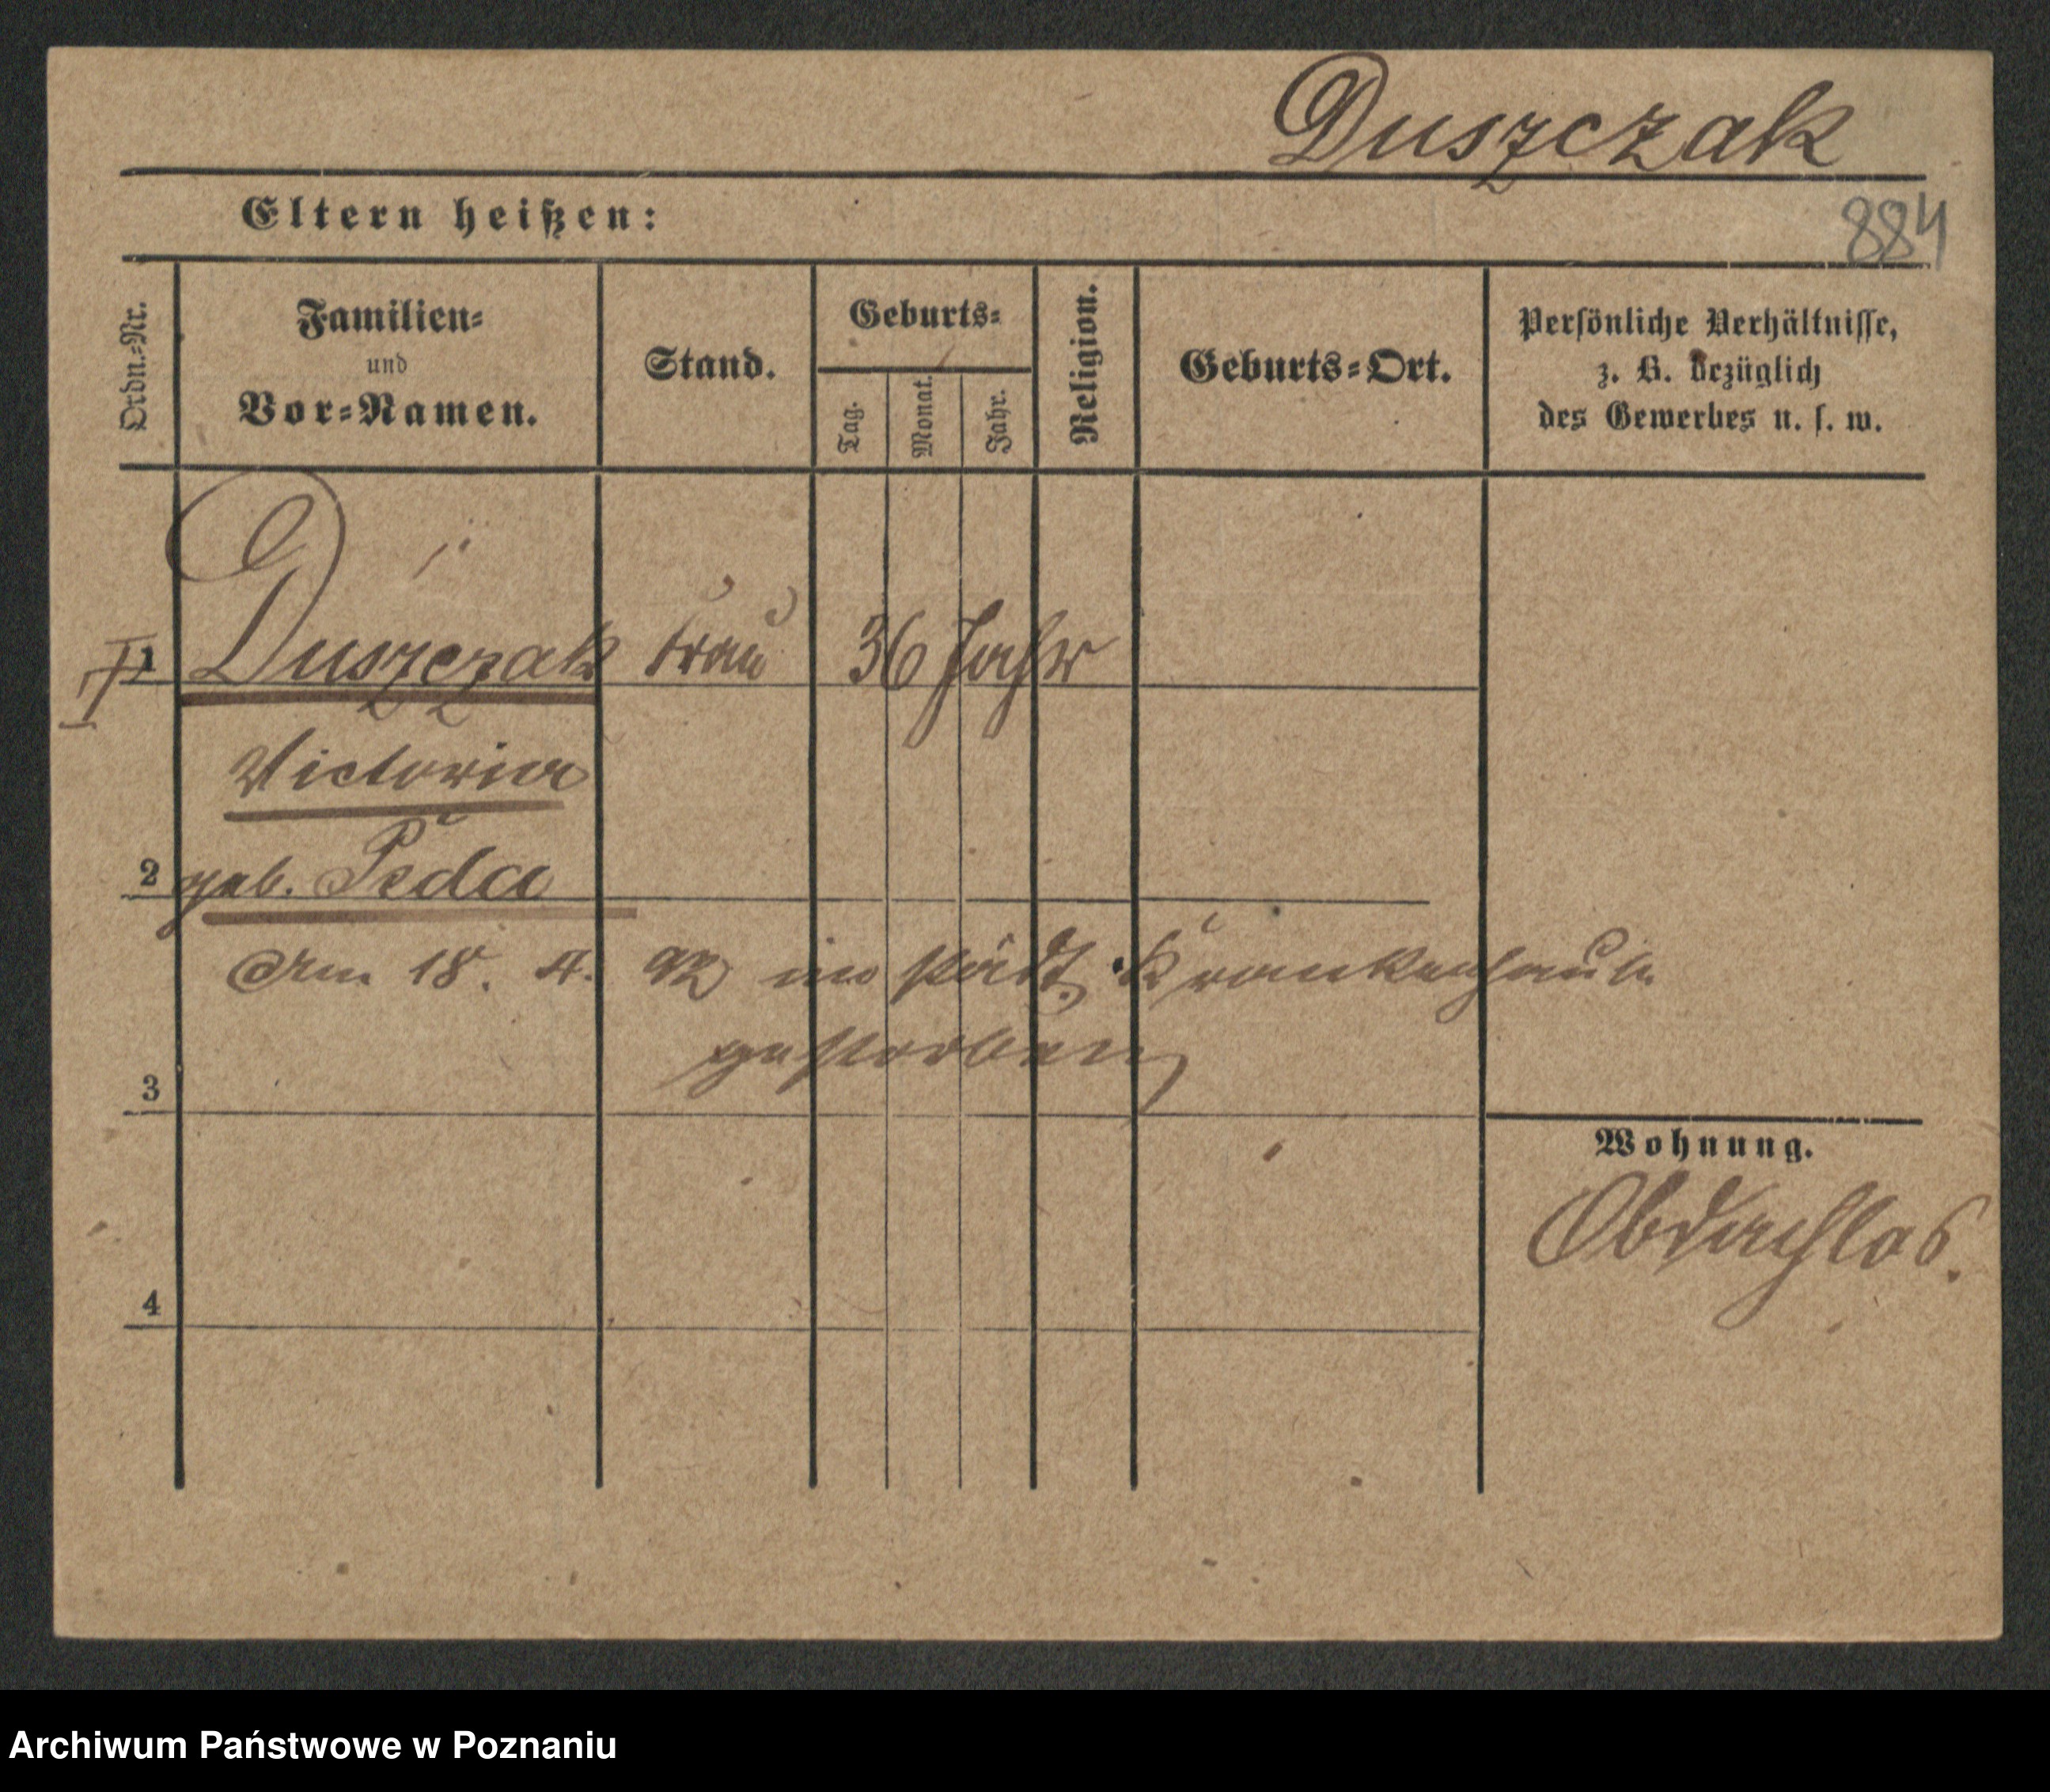 Duszczak
Eltern heißen:
884
Ordn.-Nr.
Familien-
und
Vor-Namen.
Stand.
Geburts-
Tag.
Monat.
Jahr.
Religion.
Geburts-Ort.
Persönliche Verhältnisse,
z. B. bezüglich
des Gewerbes u. s. w.
1 Duszczak Frau 36 Jahr
Victoria
2 geb. Peda
Am 18. 4. 92 im städt. Krankenhause
gestorben
3
Wohnung.
Obdachlos.
4
Archiwum Państwowe w Poznaniu